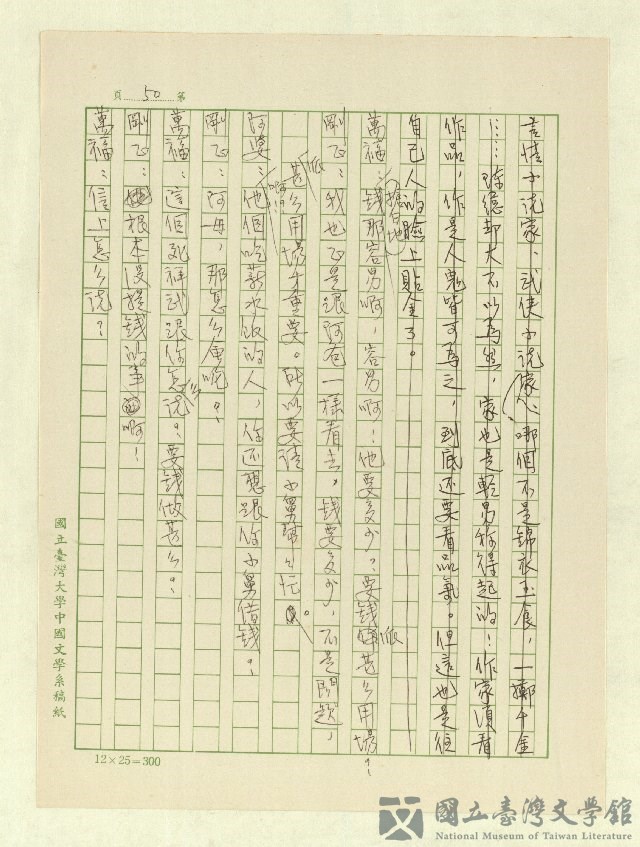 第 50 頁
言情小說家、武俠小說家,哪個不是錦衣玉食,一擲千金
……孫總卻大不以為然,家也是輕易稱得起的!作家須看
作品,作是人鬼皆可為之,到底還要看品氣。但這也是往
自己人的臉上貼金了。
萬福:錢那容易啊,容易啊!他要多少?要錢派甚么用場?
剛正:我也正是跟阿爸一樣看法。錢要多少,不是問題,
派甚么用場才重要。所以要請小舅阿公忙。
阿婆:他個吃薪水飯的人,你还想跟你小舅借錢?
剛正:阿母,那怎么會呢?
萬福:這個死祥武跟你怎么說?要錢做甚么?
剛正:他根本沒提錢的事啊!
萬福:信上怎么說?
國立臺灣大學中國文學系稿紙
12×25=300
國立臺灣文學館
National Museum of Taiwan Literature